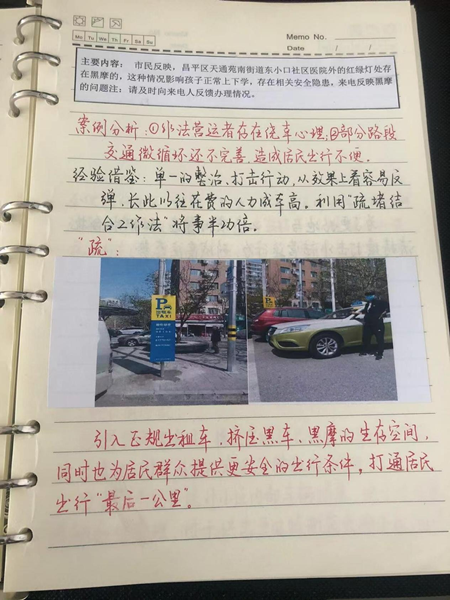 Memo No.
Mo Tu We Th Fr Sa Su
Date / /
主要内容： 市民反映，昌平区天通苑南街道东小口社区医院外的红绿灯处存
在黑摩的，这种情况影响孩子正常上下学，存在相关安全隐患，来电反映黑摩
的问题注：请及时向来电人反馈办理情况。
案例分析：①非法营运者存在侥幸心理；②部分路段
交通微循环还不完善，造成居民出行不便。
经验借鉴：单一的整治、打击行动，从效果上看容易反
弹，长此以往花费的人力成本高。利用“疏堵结
合工作法”将事半功倍。
“疏”：
P
出租车
TAXI
引入正规出租车，挤压黑车、黑摩的生存空间，
同时也为居民群众提供更安全的出行条件，打通居民
出行“最后一公里”。